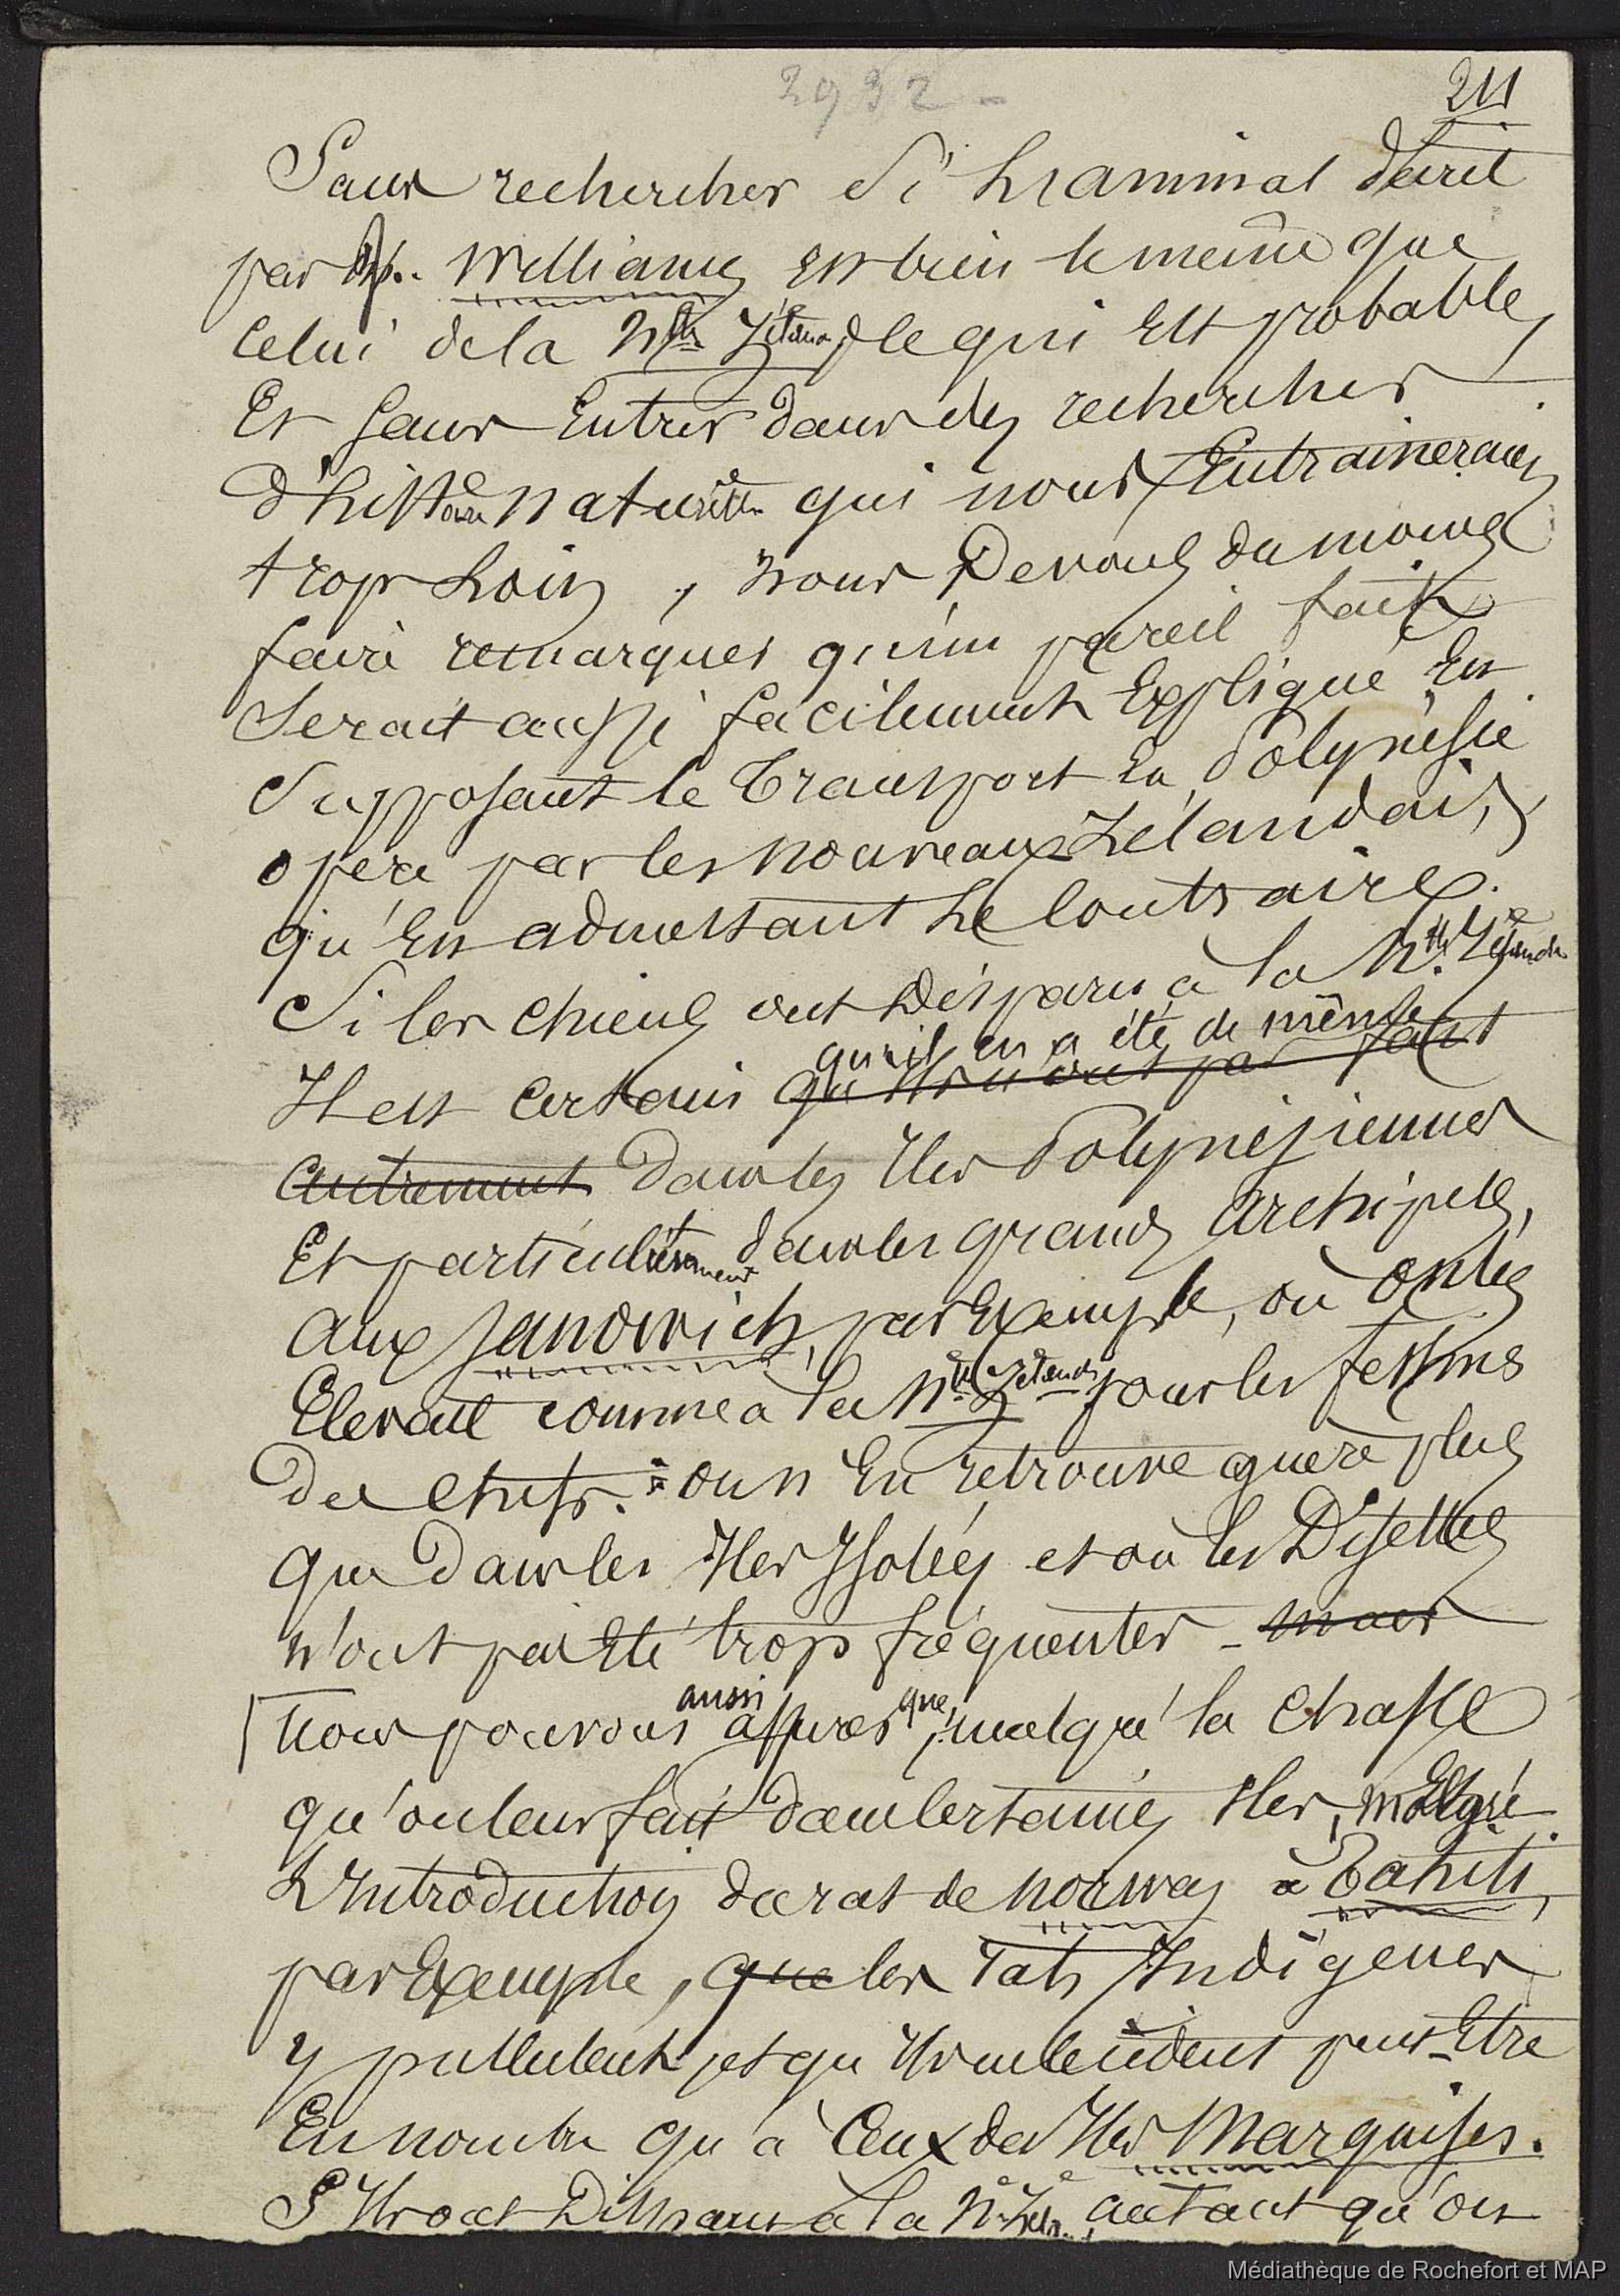 2932 -
211
Sans rechercher si l'animal décrit
par Mr. Williams est bien le même que
celui de la Nlle Zélande, ce qui est probable,
Et sans Entrer dans des recherches
d'histoire naturelle qui nous Entraineraient
trop loin, nous Devons du moins
faire remarquer qu'un pareil fait
serait aussi facilement Expliqué En
supposant le transport En Polynésie
opéré par les nouveaux Zélandais,
qu'En admettant le contraire.
Si les chiens ont disparu à la Nlle Zélande
qu'il en a été de même
Il est certain qu'ils n'ont pas fait
autrement dans les Iles Polynésiennes
Et particulièrement dans les grands archipels,
aux Sandwich, par Exemple, où on les
Elevait comme à la Nlle Zélande pour les festins
des chefs. on n'En retrouve guère plus
que dans les Iles Isolées et où les Disettes
n'ont pas Eté trop fréquentes - mais
nous pouvons aussi assurer que, malgré la chasse
qu'on leur fait dans certaines Iles, malgré
L'Introduction du rat de norway à Tahiti,
par Exemple, que les rats Indigènes
y pullulent, et qu'ils ne le cèdent peut-Etre
En nombre qu'à Ceux des Iles Marquises.
S'Ils ont Disparu à la Nlle Zélande autant qu'on
Médiathèque de Rochefort et MAP